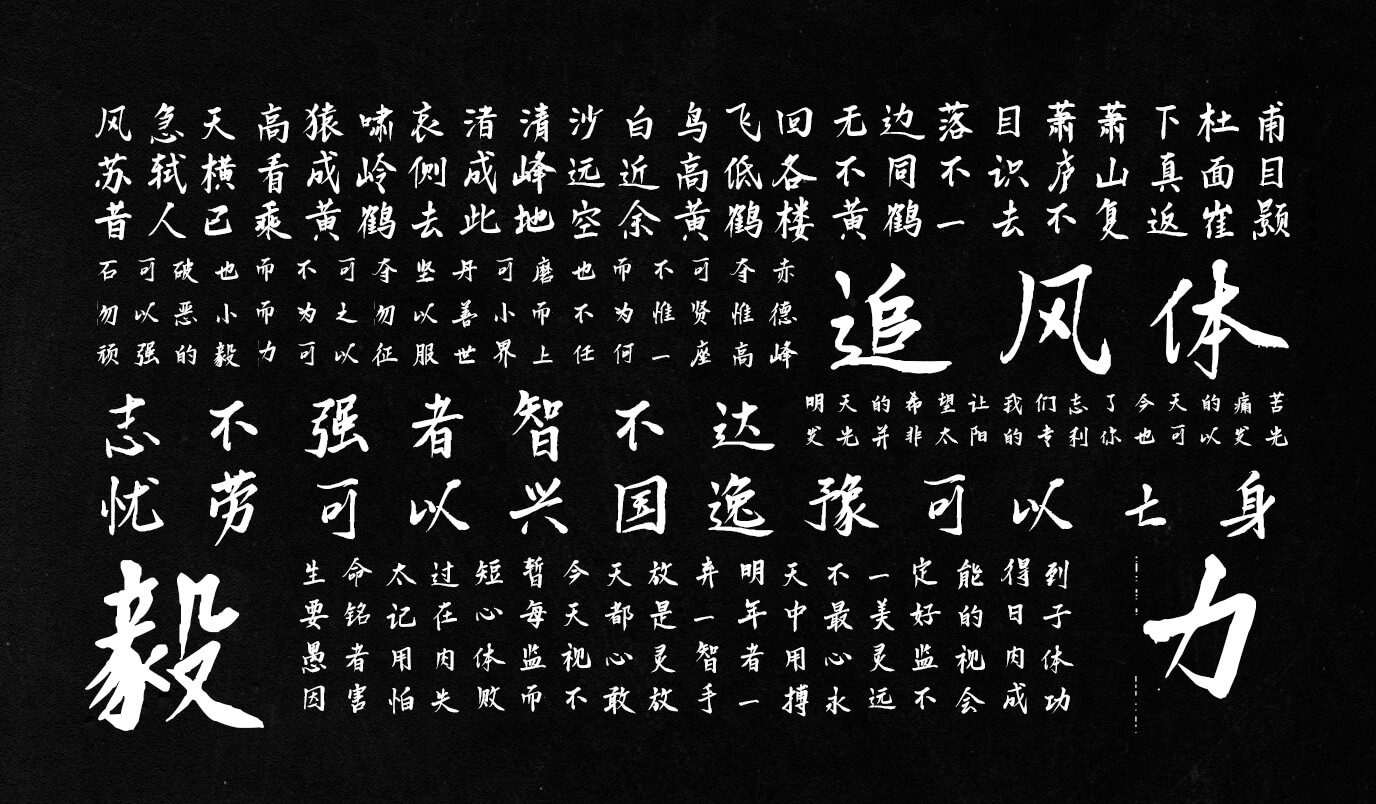 风急天高猿啸哀渚清沙白鸟飞回无边落目萧萧下杜甫
苏轼横看成岭侧成峰远近高低各不同不识庐山真面目
昔人已乘黄鹤去此地空余黄鹤楼黄鹤一去不复返崔颢
石可破也而不可夺坚丹可磨也而不可夺赤
勿以恶小而为之勿以善小而不为惟贤惟德
顽强的毅力可以征服世界上任何一座高峰
追风体
志不强者智不达
明天的希望让我们忘了今天的痛苦
发光并非太阳的专利你也可以发光
忧劳可以兴国逸豫可以亡身
毅力
生命太过短暂今天放弃明天不一定能得到
要铭记在心每天都是一年中最美好的日子
愚者用肉体监视心灵智者用心灵监视肉体
因害怕失败而不敢放手一搏永远不会成功